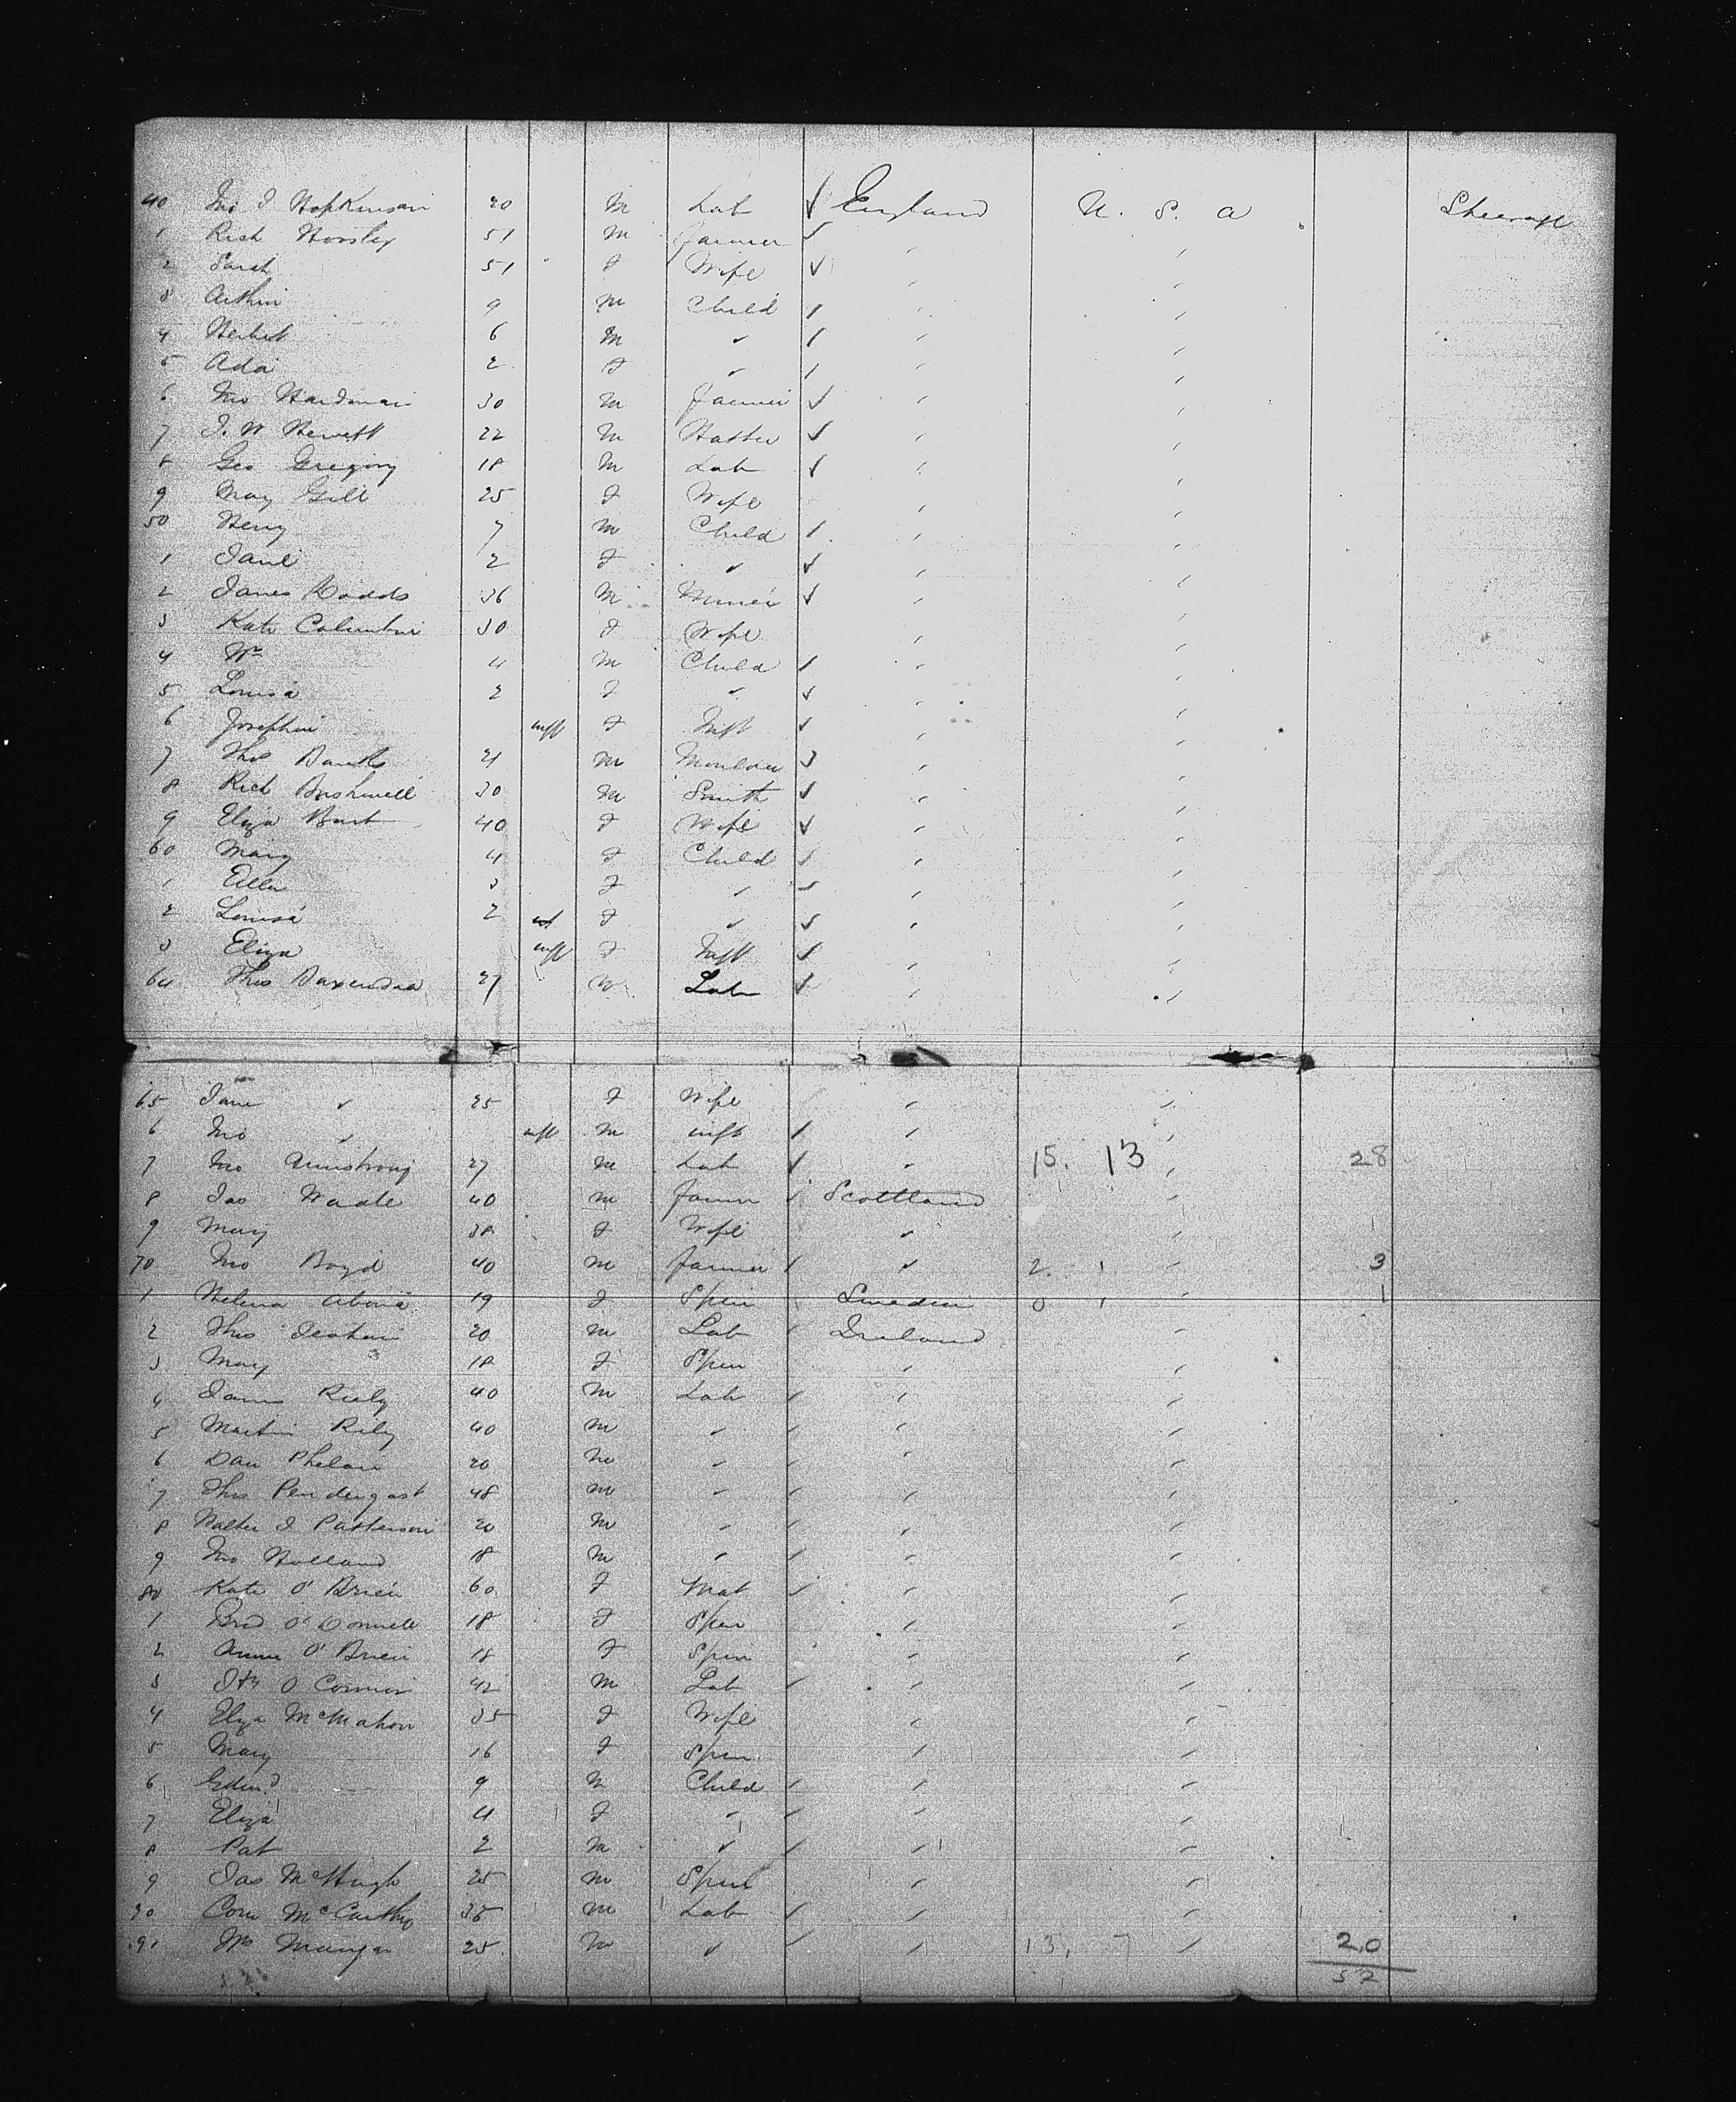 40 Jno J Hopkinson 20 M Lab England U. S. A Steerage
1 Rich Horsley 51 M Farmer
2 Sarah 51 F Wife
3 Arthur 9 M Child
4 Herbert 6 M "
5 Ada 2 F "
6 Jno Hardman 30 M Farmer
7 J. W Hewett 22 M Hatter
8 Geo Gregory 18 M Lab
9 Mary Gill 25 F Wife
50 Henry 7 M Child
1 Jane 2 F "
2 James Dodds 36 M Miner
3 Kate 30 F Wife
4 Wm 4 M Child
5 Louisa 2 F "
6 Josephine inft F Inft
7 Thos Banks 21 M Moulder
8 Rich Bushnell 30 M Smith
9 Eliza 40 F Wife
60 Mary 4 F Child
1 Ellen 3 F "
2 Louisa 2 F "
3 Eliza inft F Inft
64 Thos 27 M Lab
65 Jane " 25 F Wife
6 Jno " inft M inft
7 Jno Armstrong 27 M Lab " 15. 13 28
8 Jas Wardle 40 M Farmer Scottland
9 Mary 38 F Wife "
70 Jno Boyd 40 M Farmer " 2. 1 3
1 Helena 19 F Spin Sweden 0 1 1
2 Thos 20 M Lab Ireland
3 Mary 18 F Spin
4 James Riely 40 M Lab
5 Martin Rily 40 M "
6 Dan Phelan 20 M "
7 Thos Pendergast 48 M "
8 Walter J Patterson 20 M "
9 Jno Holland 18 M "
80 Kate O' Brien 60 F Mat
1 Brid O' Donnell 18 F Spin
2 Annie O' Brien 18 F Spin
3 O Connor 42 M Lab
4 Eliza McMahon 35 F Wife
5 Mary 16 F Spin
6 Edmd 9 M Child
7 Eliza 4 F "
8 Pat 2 M "
9 Jas McHugh 25 M Spin
90 Corn McCarthy 35 M Lab
91 Wm 25 M " 13. 7 20
52